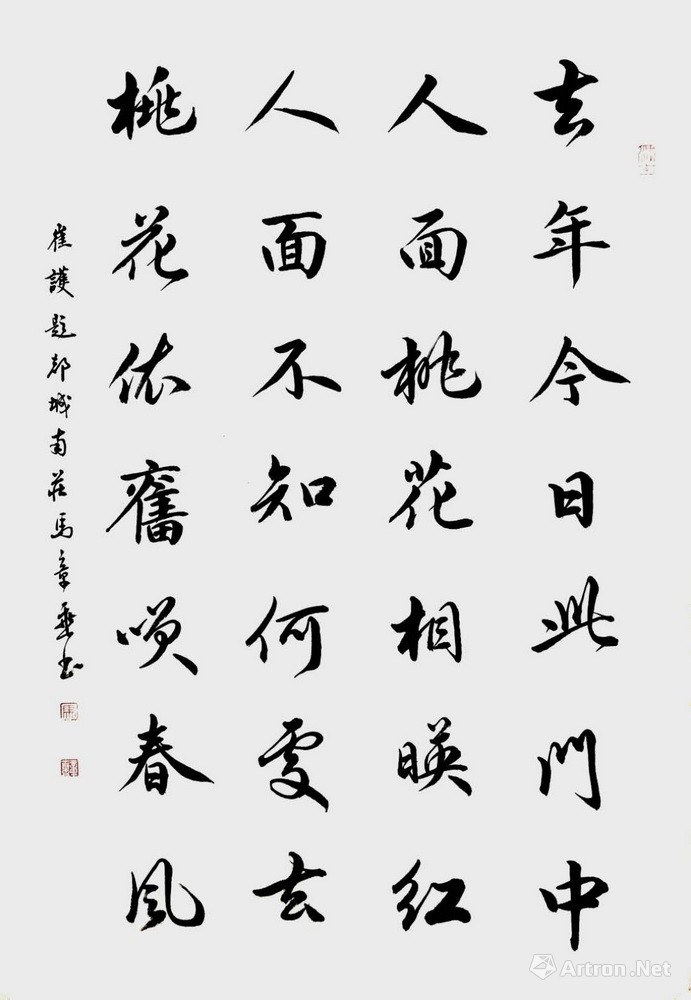 去年今日此門中
人面桃花相暎紅
人面不知何處去
桃花依舊唉春風
崔護題都城南莊馬章乗书
Artron.Net